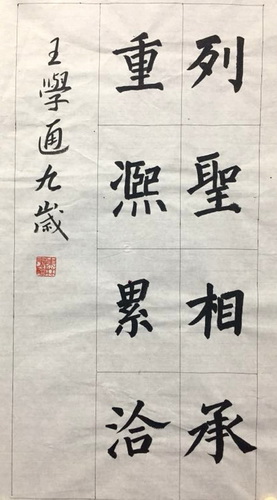 列聖相承
重熈累洽
王學通九歲